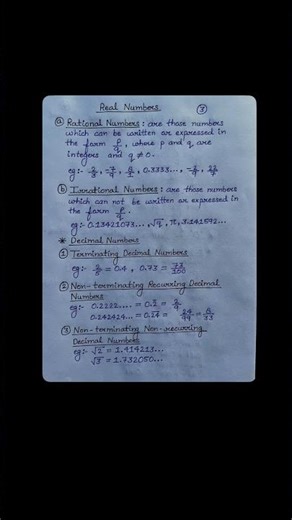 Real Numbers
③
ⓐ Rational Numbers : are those numbers
which can be written or expressed in
the form p/q, where p and q are
integers and q ≠ 0.
eg:-
0.3333...,
ⓑ Irrational Numbers : are those numbers
which can not be written or expressed
in the form p/q.
eg:- 0.13421073...,
π, 3.141592...
* Decimal Numbers
① Terminating Decimal Numbers
eg:- = 0.4 , 0.73 =
② Non-terminating Recurring Decimal
Numbers
eg:- 0.2222.... =
0.242424... =
③ Non-terminating Non-recurring
Decimal Numbers
eg:- √2 = 1.414213...
√3 = 1.732050...